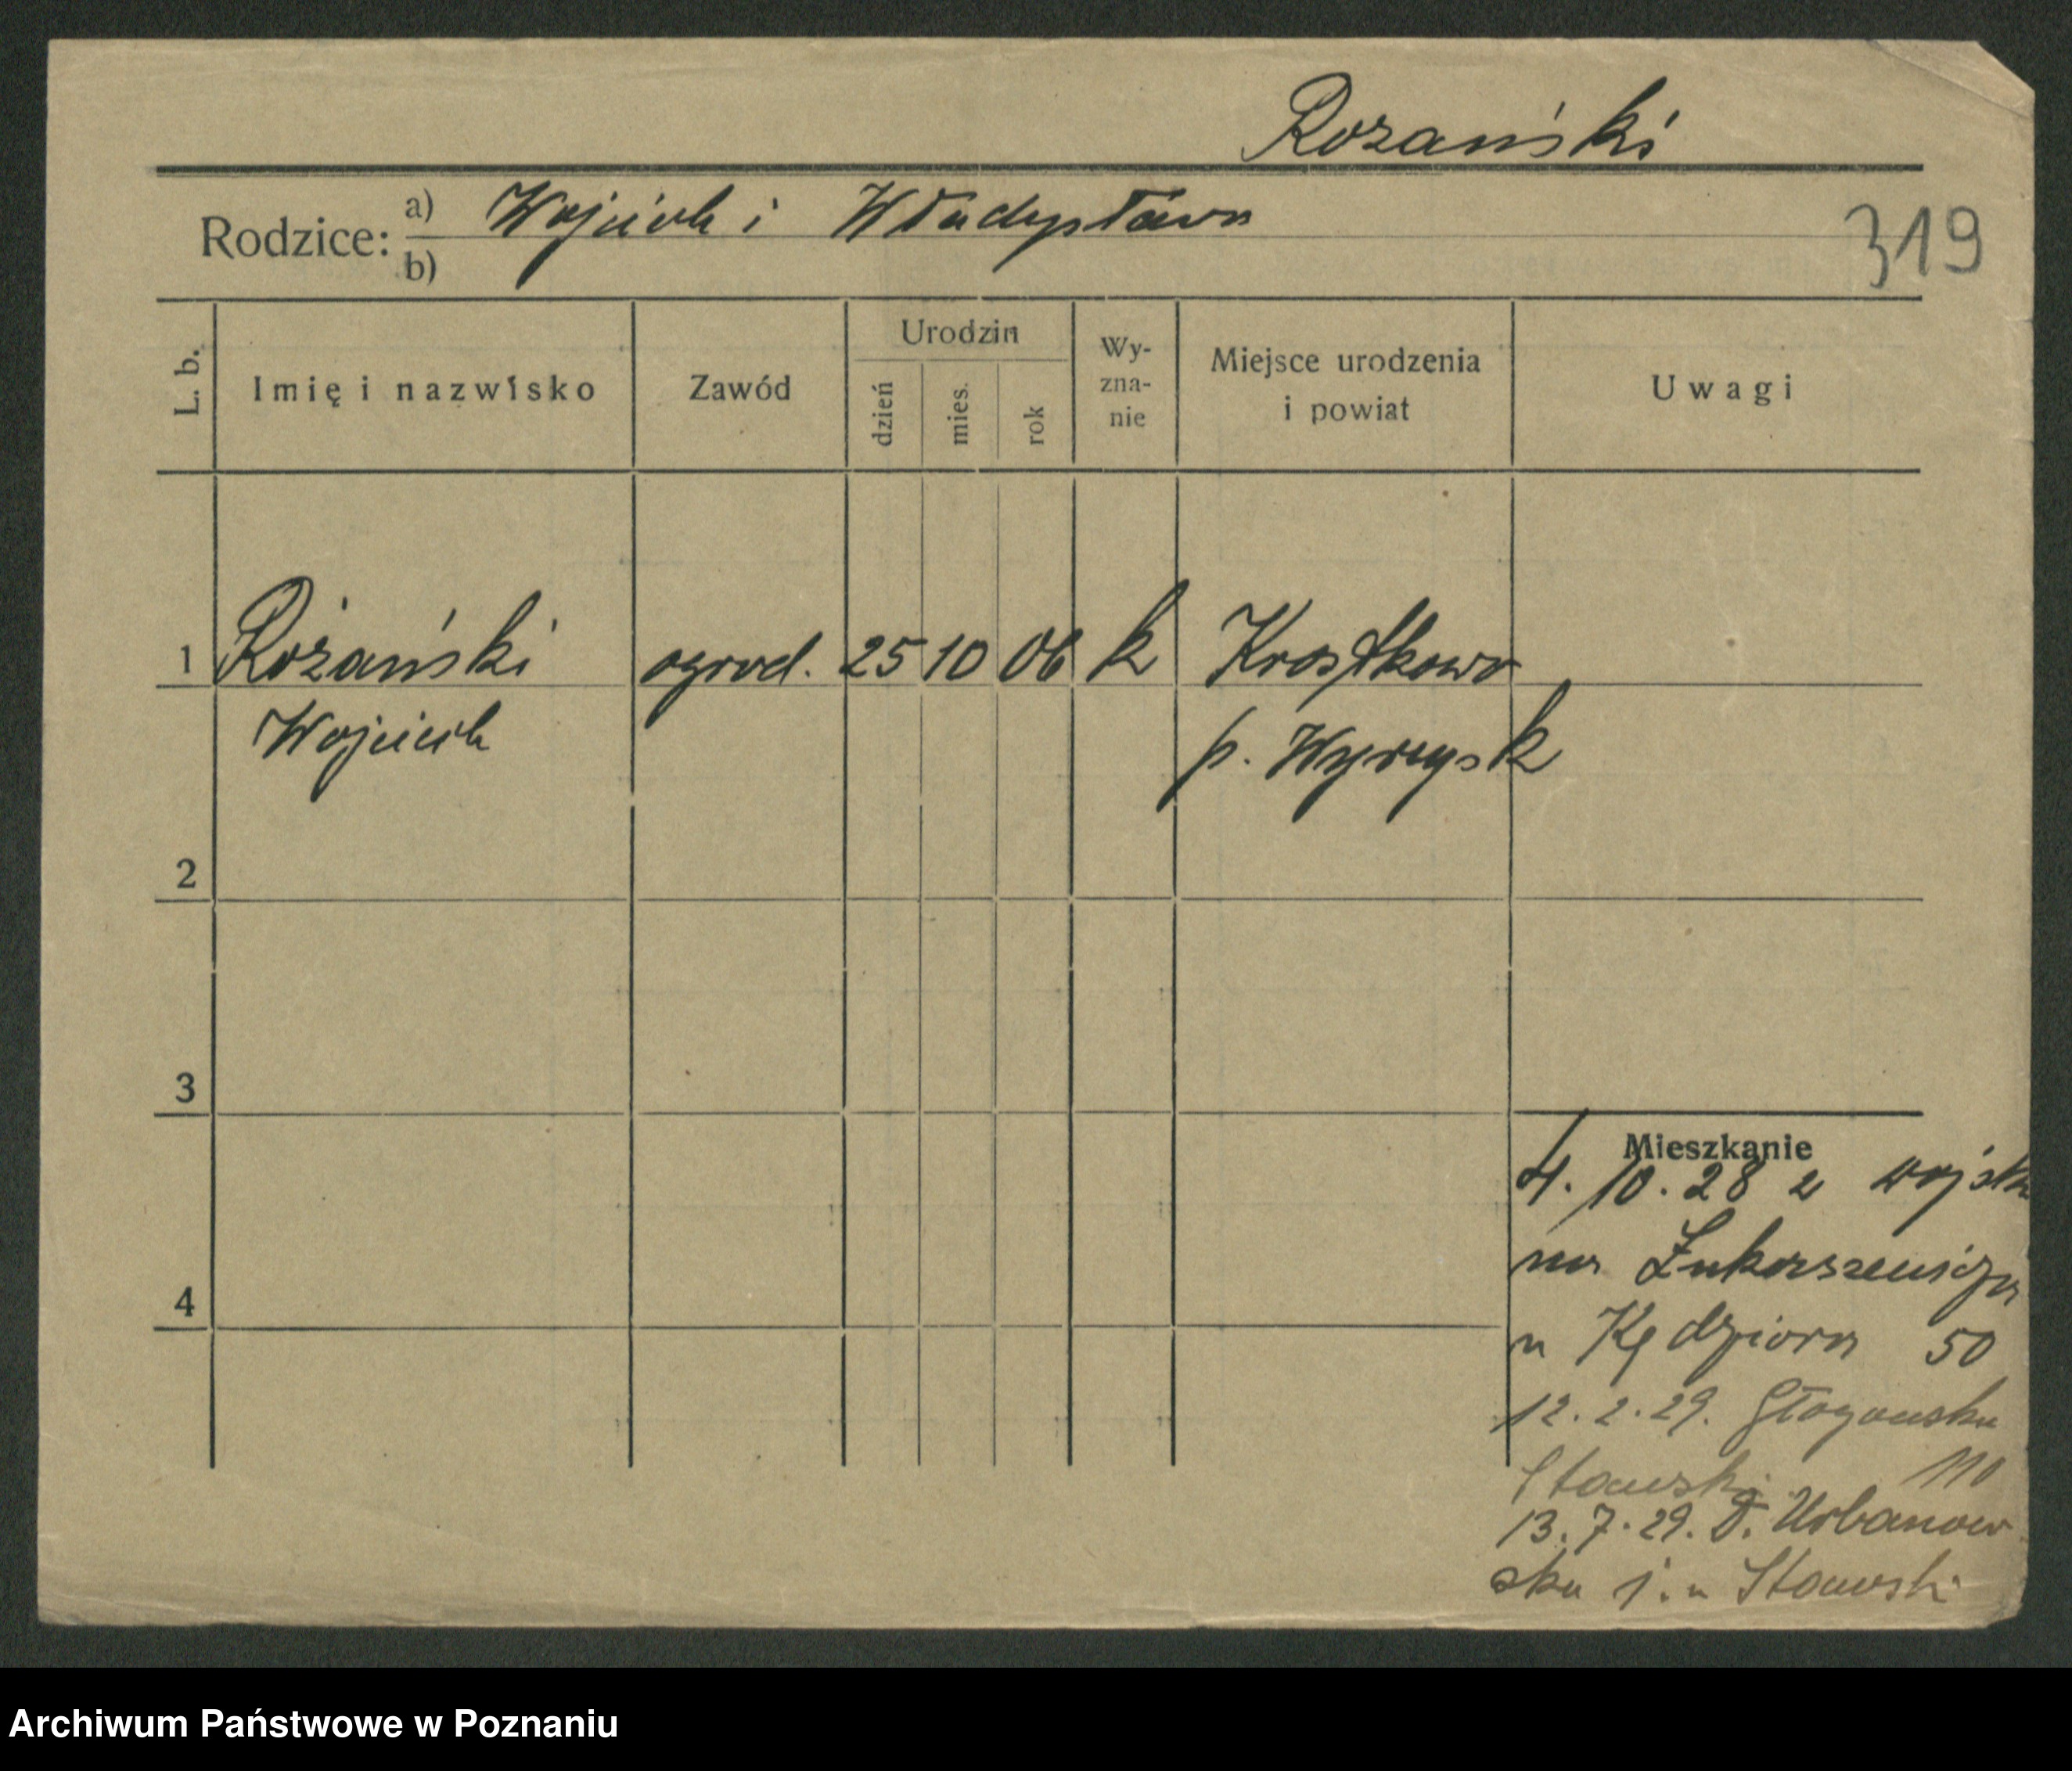 Rozański
Rodzice: a) Wojciech i Władysława
b)
319
L. b.
Imię i nazwisko
Zawód
Urodzin
dzień
mies.
rok
Wy-
zna-
nie
Miejsce urodzenia
i powiat
Uwagi
1 Różański ogrod. 25 10 06 k Krostkowo
Wojciech p. Wyrzysk
2
3
4
Mieszkanie
4. 10. 28 z wojska
na Łukaszewicza
u Kędziora 50
12. 2. 29. Głogowska
Stawski 110
13. 7. 29. D. Urbanow
ska j. u Stawski
Archiwum Państwowe w Poznaniu